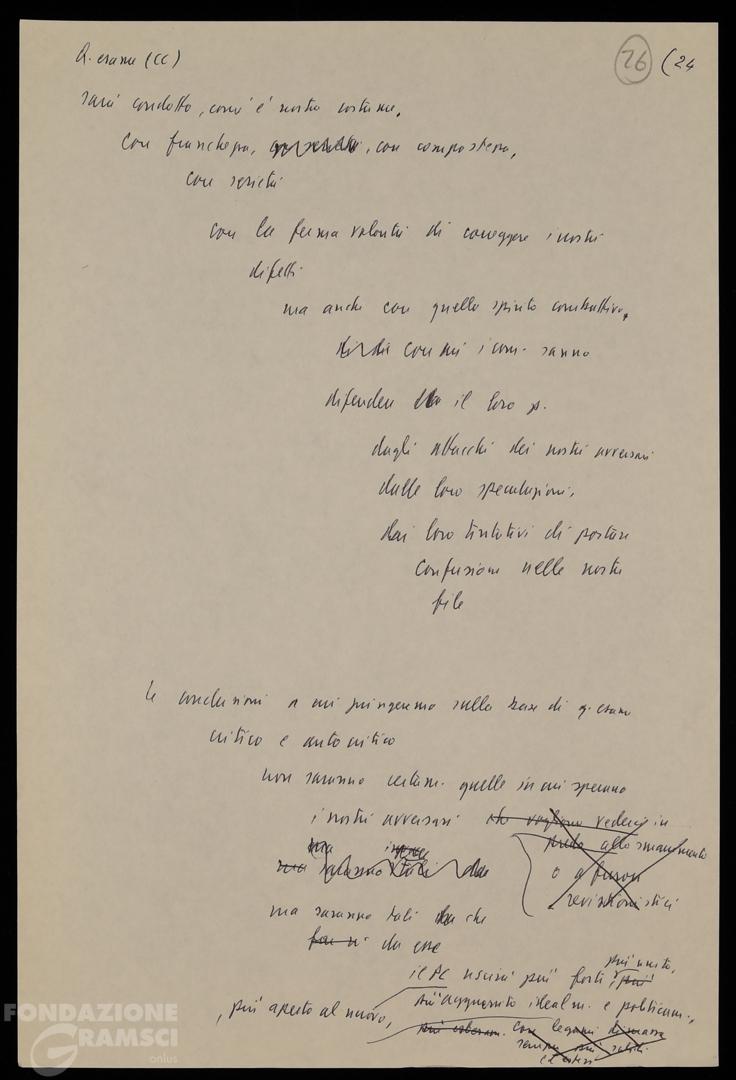 Q. esame (CC) 26 (24
sarà condotto, com'è nostro costume,
con franchezza, con compostezza,
con serietà
con la ferma volontà di correggere i nostri
difetti
ma anche con quello spirito combattivo,
con cui i com. sanno
difendere il loro p.
dagli attacchi dei nostri avversari
dalle loro speculazioni,
dai loro tentativi di portare
confusione nelle nostre
file
Le conclusioni a cui giungeremo sulla base di q. esame
critico e autocritico
non saranno certam. quelle in cui sperano
i nostri avversari che vogliono vederci in
preda allo smarrimento
o a furori
revisionistici
ma saranno tali che
ma saranno tali che
far sì da esse
il PC uscirà più forte, più
più unito,
, più aperto al nuovo, più agguerrito idealm. e politicam.,
con legami di massa
sempre più solidi
ed estesi
FONDAZIONE
GRAMSCI
onlus